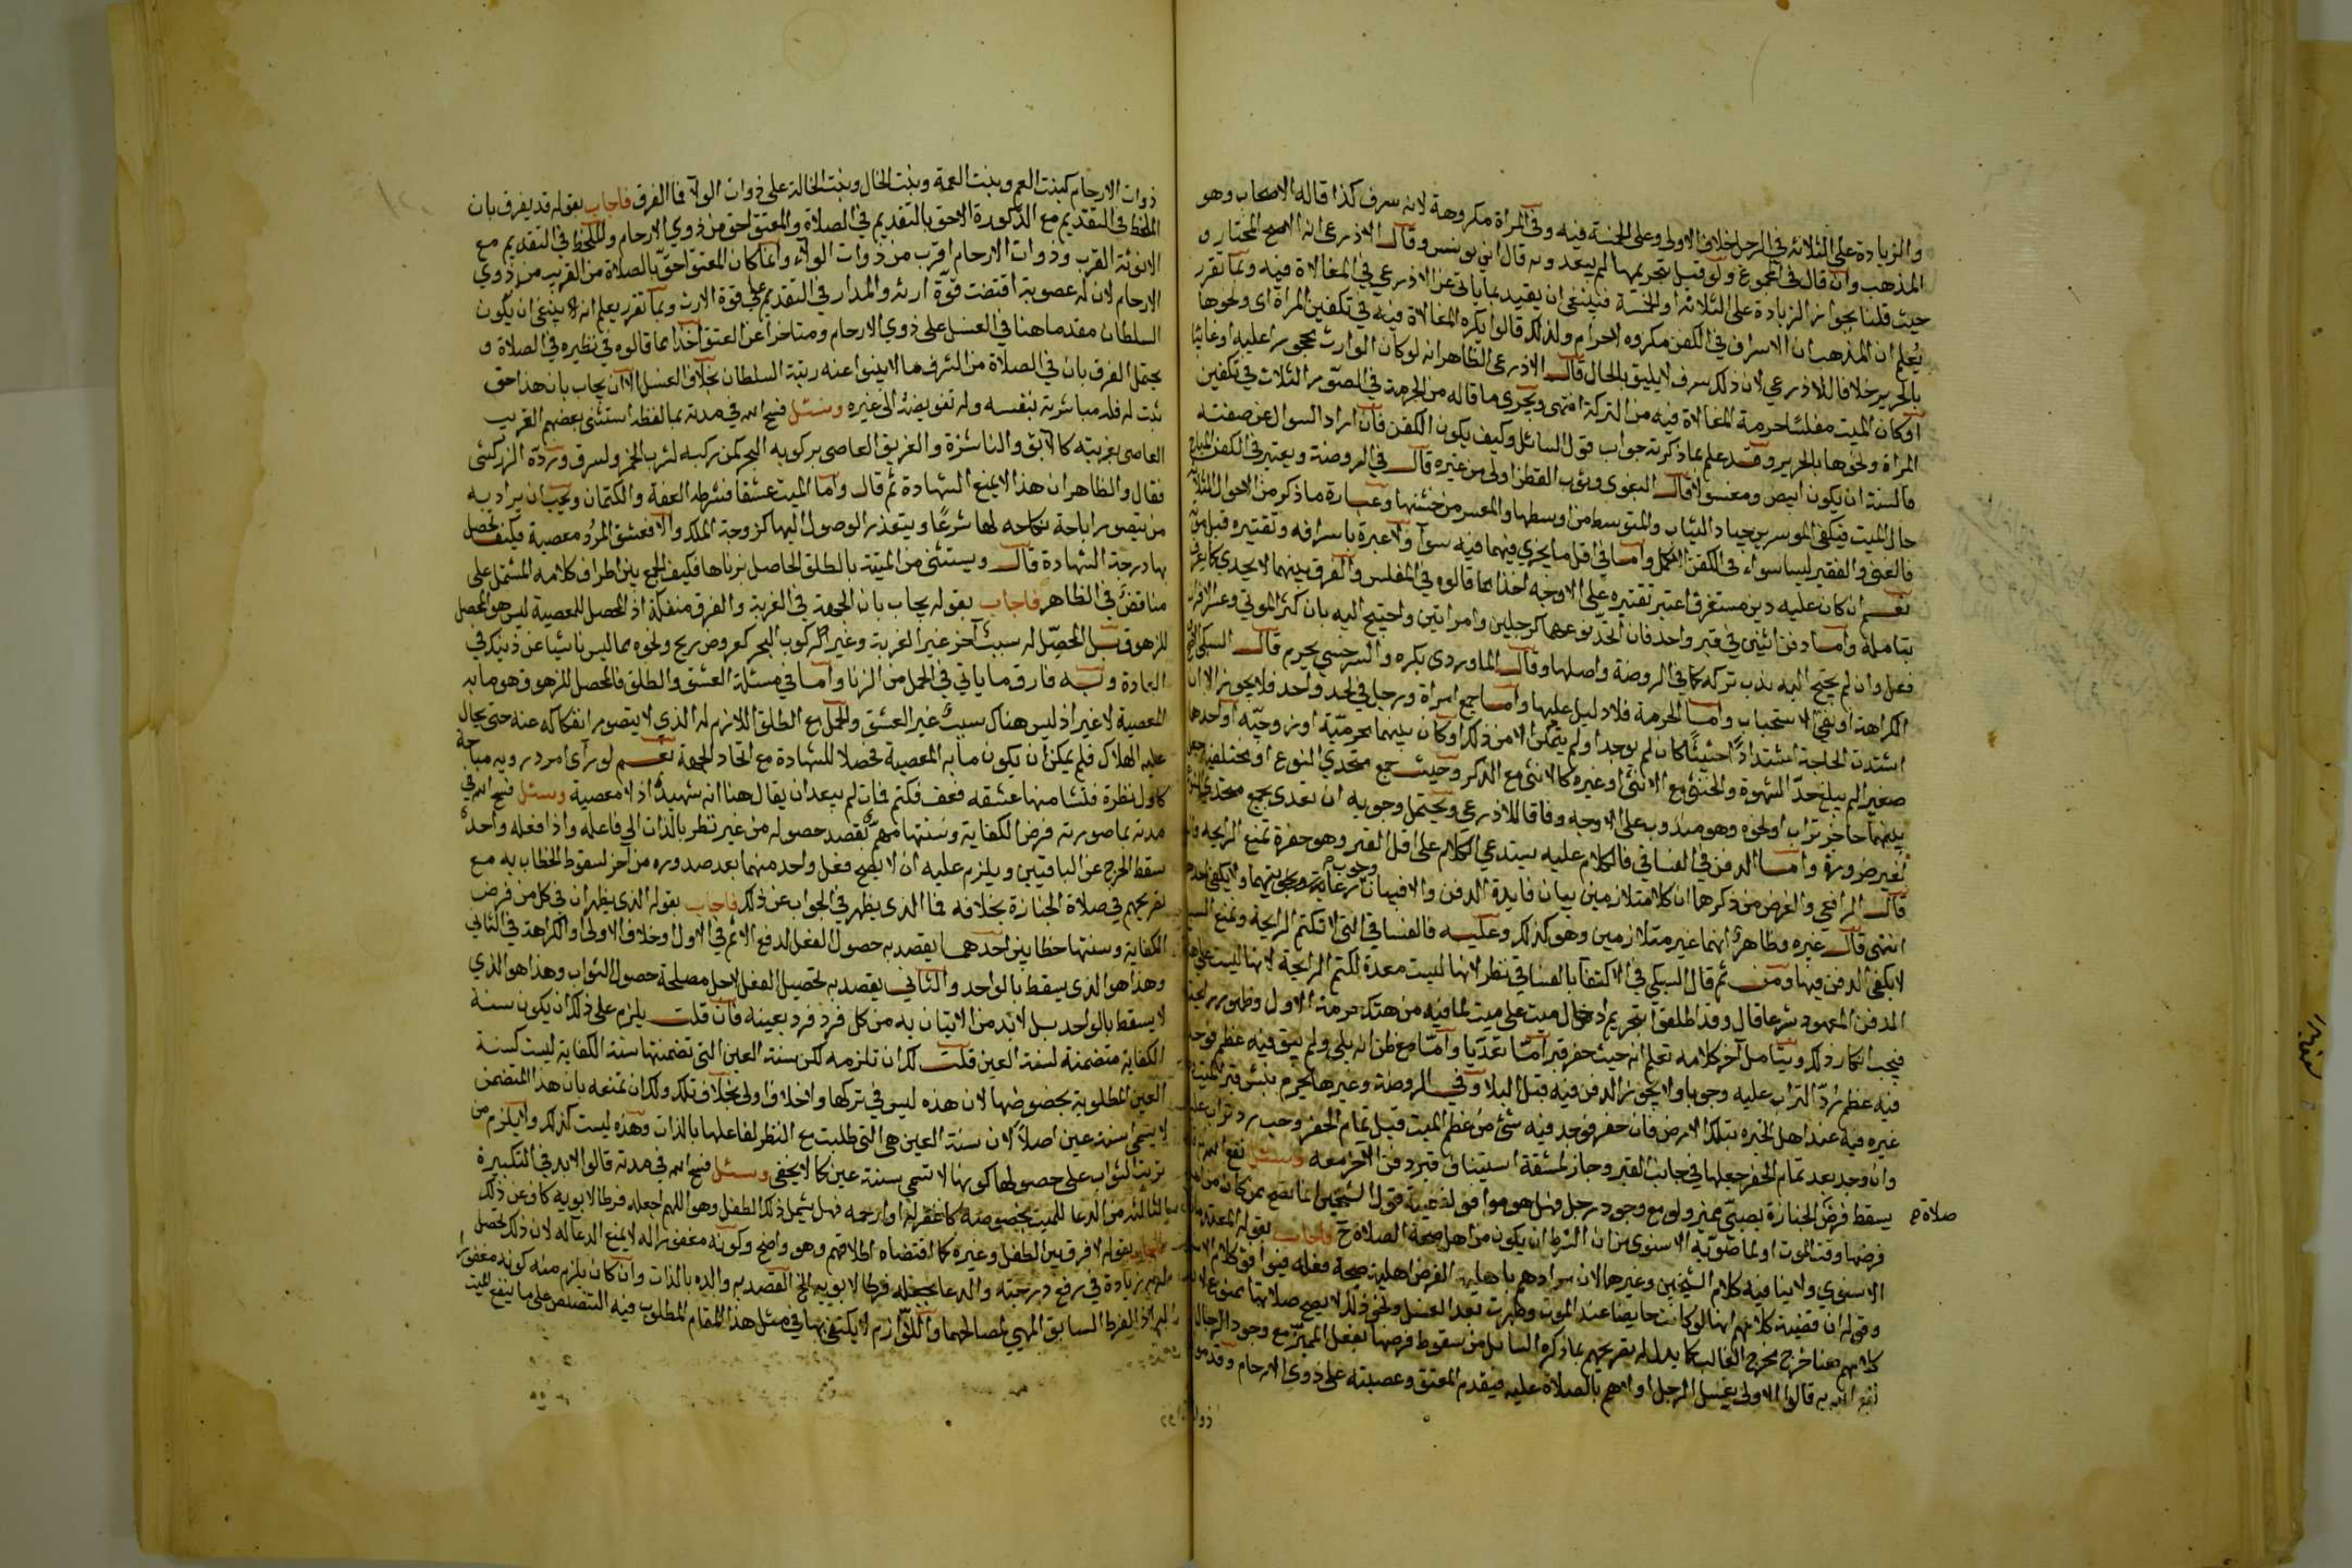 والزيادة على الثلاثة في الرجل خلاف الاولى وعلى الخمسة فيه وفي المراة مكروهة لانه سرف كذا قاله الاصحاب وهو
المذهب وان قال في المجموع ولو قيل بتحريمها لم يبعد وبه قال ابن يونس وقال الاذرعي انه الاصح المختار و
حيث قلنا بجواز الزيادة على الثلاثة او الخمسة فينبغي ان يقيد بما ياتي عن الاذرعي في المغالاة فيه وبما تقرر
يُعلم ان المذهب ان الاسراف في الكفن مكروه لا حرام ولذلك قالوا يكره المغالاة فيه في تكفين المراة اي ونحوها
بالحرير خلافا للاذرعي لان ذلك سرف لا يليق بالحال قال الاذرعي الظاهر انه لو كان الوارث محجورا عليه او غائبا
او كان الميت مفلسا حرمة المغالاة فيه من التركة انتهى ويجري ما قاله من الحرمة في الصور الثلاث في تكفين
المراة ونحوها بالحرير وقد علم مما ذكرته جواب قول السائل وكيف يكون الكفن فان اراد السوال عن صفته
فالسنة ان يكون ابيض ومغسولا قال البغوي وثوب القطن اولى من غيره قال في الروضة ويعتبر في الكفن المباح
حال الميت فيكفن الموسر من جياد الثياب والمتوسط من اوسطها والمعسر من خشنها وعبارة ما ذكر من الاحوال الثلاثة
فالغني والفقير ليسا سواء في الكفن الاكمل واما في اقل ما يجزي فيهما فيه سوآ ولا عبرة باسرافه وتقتيره قبل موته
نعم ان كان عليه دين مستغرق اعتبر تقتيره على الاوجه اخذا مما قالوه في المفلس والفرق بينهما لا يجدي كما يعرف
بتامله واما دفن اثنين في قبر واحد فان اتحد نوعهما كرجلين وامراتين واحتيج اليه بان كثر الموتى وعسر الافراد
فعل وان لم يحتج اليه ندب تركه كما في الروضة واصلها وقال الماوردي يكره والسرخسي يحرم قال السبكي الاصح
الكراهة او نفي الاستحباب واما الحرمة فلا دليل عليها واما جمع امراة ورجل في لحد واحد فلا يجوز الا ان
اشتدت الحاجة اشتدادًا حثيثًا كان لم يوجد او لم يتمكن الا من ذلك او كان بينهما محرمية او زوجية او احدهما
صغير الم يبلغ حدّ الشهوة والخنثى مع الانثى او غيره كالانثى مع الذكر وحيث جمع متحدي النوع او مختلفيه جعل
بينهما حاجز تراب او نحوه وهو مندوب على الاوجه وفاقا للاذرعي ويحتمل وجوبه ان تعدى بجمع متحدي النوع
لغير ضرورة واما الدفن في الفساقي فالكلام عليه يستدعي الكلام على اقل القبر وهو حفرة تمنع الرائحه
قال الرافعي والغرض من ذكرهما ان كلا متلازمين بيان فايدة الدفن والا فبيان وجوب رعايتهما ولا يكفي احدهما
انتهى قال غيره وظاهره انهما غير متلازمين وهو كذلك وعليه فالفساقي التي لا تكتم الرايحة وتمنع السبع
لا يكفي الدفن فيها ومن ثم قال السبكي في الاكتفآ بالفساقي نظر لانها ليست معدة لكتم الرايحة لانها ليست على هيئة
الدفن المعهود شرعا قال وقد اطلقوا تحريم ادخال ميت على ميت لما فيه من هتك حرمة الاول وظهور رايحته
فيجب انكار ذلك ويتامل آخر كلامه تعلم انه حيث حفر قبر امّا تعديا وامّا مع ظن انه بلي ولم يبق فيه عظم فوجد
فيه عظم رُدّ التراب عليه وجوبا ولا يجوز الدفن فيه قبل البلا وفي الروضة وغيرها يحرم نبش قبر الميت
غيره فيه عند اهل الخبره بتلك الارض فان حفر فوجد فيه شئ من عظم الميت قبل تمام الحفر وجب رد ترابه عليه
وان وجد بعد تمام الحفر جعلها في جانب القبر وجاز لمشقة استيناف قبر دفن الآخر معه وسئل نفع الله
يسقط فرض الجنازة بصبيّ مميز ولو مع وجود رجل فهل هو موافق لقضية قول الشيخين انما تصح ممن كان من اهل
صلاة صح
فرضها وقت الموت او لما صوّبه الاسنوي من ان الشرط ان يكون من اهل صحة الصلاة ح فاجاب بقوله المعتمد
الاسنوي ولا ينافيه كلام الشيخين وغيرهما لان مرادهم باهلية الفرض اهلية صحة فعله فيوافق كلام
وقوله ان قضية كلامهم انها لو كانت حايضا عند الموت وطهرت بعد الغسل ونحو ذلك لا يصح صلاتها ممنوع
كلامهم هنا خرج مخرج الغالب كما يدل له تصريحهم بما ذكره السايل من سقوط فرضها بفعل المميّز مع وجود الرجال
نفع الله به قالوا الاولى بغسل الرجل اولاهم بالصلاة عليه فيقدم المعتق وعصبته على ذوي الارحام وقدموا
ذوات
ذوات الارحام كبنت العم وبنت العمة وبنت الخال وبنت الخالة على ذوات الولآ فما الفرق فاجاب بقوله قد يفرق بان
الملحظ في التقديم مع الذكورة الاحق بالتقديم في الصلاة والمعتق احق من ذوي الارحام والملحظ في التقديم مع
الانوثة القرب وذوات الارحام اقرب من ذوات الولآء وانما كان المعتق احقّ بالصلاة من القريب من ذوي
الارحام لان له عصوبة اقتضت قوّة ارثه والمدار في التقديم على قوة الارث وبما تقرر يعلم انه لا ينبغي ان يكون
السلطان مقدما هنا في الغسل على ذوي الارحام ومتاخرا عن المعتق اخذا مما قالوه في نظيره في الصلاة و
يحتمل الفرق بان في الصلاة من الشرف ما لا ينبوا عنه رتبة السلطان بخلاف الغسل الا ان يجاب بان هذا حق
ثبت له فله مباشرته بنفسه وله تفويضه الى غيره وسئل فسح الله في مدته بما لفظه استثنى بعضهم الغريب
العاصي بغربته كالآبق والناشزة والغريق العاصي بركوبه البحر كمن ركبه لشرب الخمر ولسرق وردّه الزركشي
فقال والظاهر ان هذا لا يمنع الشهادة ثم قال واما الميت عشقا فشرطه العفة والكتمان ويجب ان يراد به
من يتصور اباحة نكاحه لها شرعًا ويتعذر الوصول اليها كزوجة الملك والا فعشق المرُد معصية فكيف تحصل
بها درجة الشهادة قال ويستثنى من الميتة بالطلق الحاصل بزناها فكيف الجمع بين اطراف كلامه المشتمل على
مناقضٍ في الظاهر فاجاب بقوله يجاب بان الجهة في الغربة والغرق منفكة اذ المحصل للمعصية ليس هو المحصل
للزهوق بل المحصّل له سببٌ آخر غير الغربة وغير الركوب البحر كعروض ريح ونحوه مما ليس ناشيا عن ذينك في
العادة وبه فارق ما ياتي في الحمل من الزنا واما في مسئلة العشق والطلق فالمحصل للزهوق هو ما به
المعصية لا غير اذ ليس هناك سببٌ غير العشق والحمل مع الطلق اللازم له الذي لا يتصور انفكاكه عنه حتى يحال
عليه الهلاك فلم يمكن ان يكون ما به المعصية محصلا للشهادة مع اتحاد الجهة نعم لو رآى امرد رويه مباحة
كاول نظرة فنشا منها عشقه فعف فكتم فمات لم يبعد ان يقال هنا انه شهيدٌ اذ لا معصية وسئل فسح الله في
مدته بما صورته فرض الكفاية وسنتها مهمّ يقصد حصوله من غير نظر بالذات الى فاعله واذا فعله واحدٌ
سقط الحرج عن الباقيين ويلزم عليه ان لا يصح فعل واحد منهما بعد صدوره من آخر لسقوط الخطاب به مع
تصريحهم في صلاة الجنازة بخلافه فما الذي يظهر في الجواب عن ذلك فاجاب بقوله الذي يظهر ان في كل من فرض
الكفاية وسنتها خطابين احدهما يقصد به حصول الفعل لدفع الاثم في الاول او خلاف الاولى او الكراهة في الثاني
وهذا هو الذي يسقط بالواحد والثاني يقصد به تحصيل الفعل لاجل مصلحة حصول الثواب وهذا هو الذي
لا يسقط بالواحد بل لا بد من الاتيان به من كل فرد فرد بعينه فان قلت يلزم على ذلك ان يكون سنة
الكفاية متضمنة لسنة العين قلت لك ان تلزمه لكن سنة العين التي تضمنتها سنة الكفاية ليست كسنة
العين المطلوبة بخصوصها لان هذه ليس في تركها ولا خلاف اولى بخلاف تلك ولك ان تمنعه بان هذا المتضمن
لا يسمى سنة عين اصلًا لان سنة العين هي التي طلبت مع النظر لفاعلها بالذات وهذه ليست كذلك ولا يلزم من
ترتب الثواب على حصولها كونها لا تسمى سنة عين كما لا يخفى وسئل فسح الله في مدته قالوا لا بد في التكبيرة
الثالثة من الدعا للميت بخصوصه كاغفر له او ارحمه فهل يشمل ذلك الطفل وهو اللهم اجعله فرطا لابويه كاف عن ذلك
فاجاب بقوله لا فرق بين الطفل وغيره كما اقتضاه اطلاقهم وهو واضح وكونه مغفورا له لا يمنع الدعآ له لان ذلك يحصل
له به زيادة في رفع درجته والدعا بجعله فرطا لابويه الخ القصد به والديه بالذات وان كان يلزم منه كونه مغفورا
له اذ الفرط السابق المهيئ لمصالحهما واللوازم لا يكتفى بها في مثل هذا المقام المطلوب فيه التنصيص على ما ينفع الميت